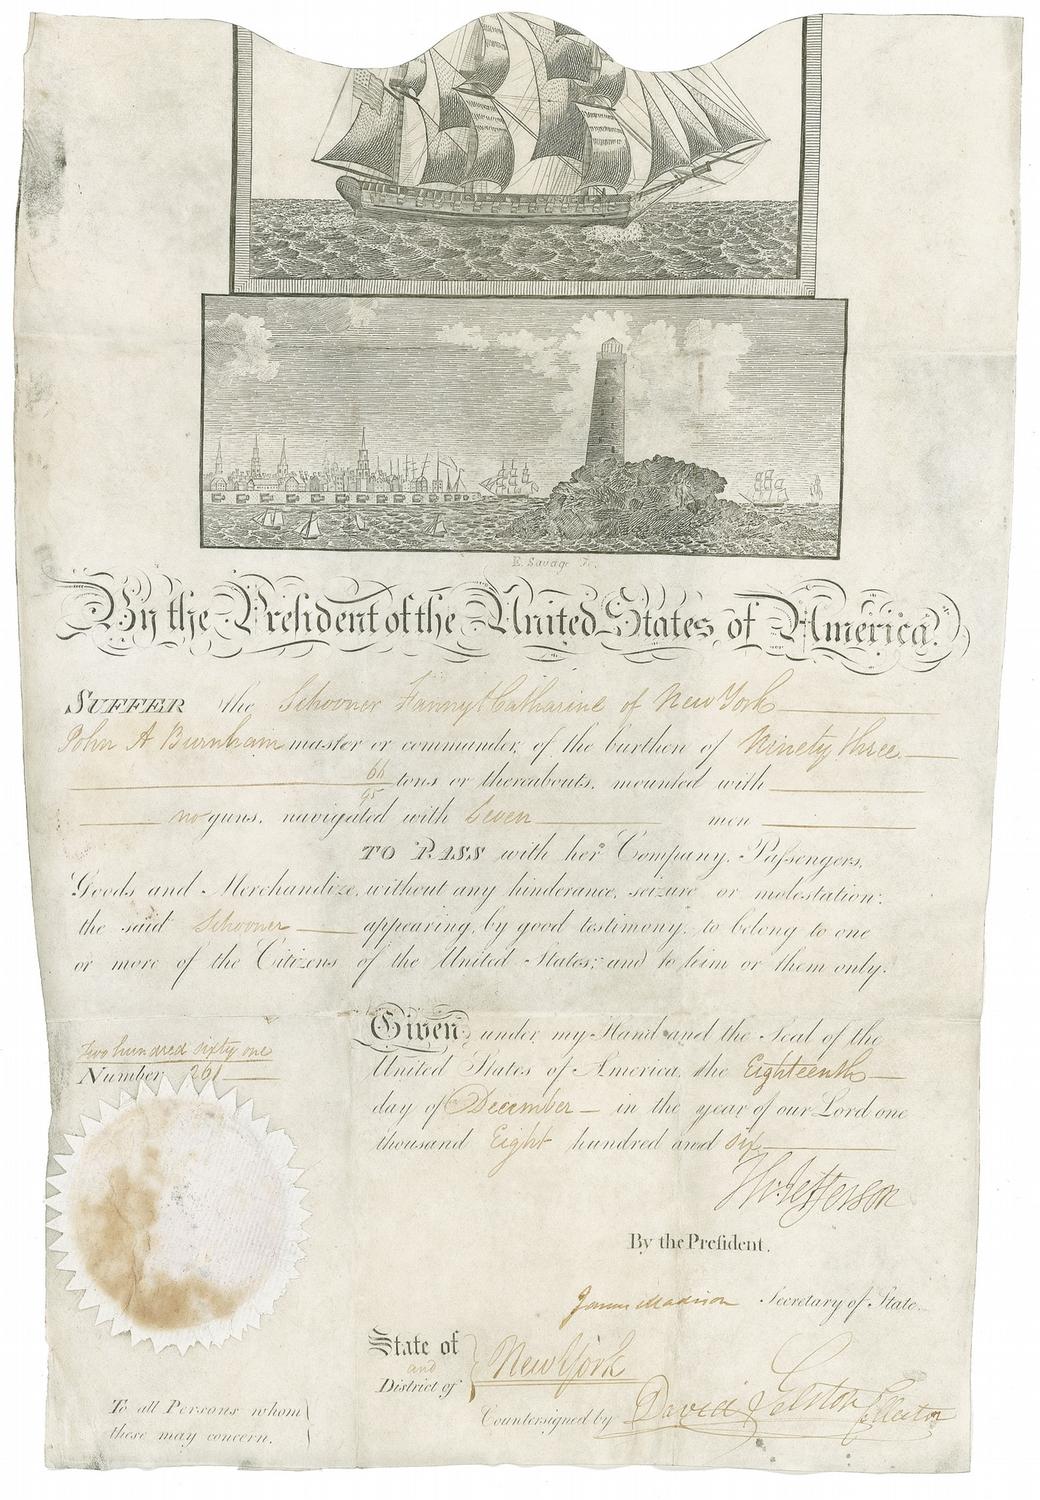 E. Savage
By the President of the United States of America.
SUFFER the Schooner Fanny & Catharine of New York
John A Burnham master or commander, of the burthen of Ninety three
66/95 tons or thereabouts, mounted with
no guns, navigated with Seven men
TO PASS with her Company, Passengers,
Goods and Merchandize, without any hinderance, seizure or molestation;
the said Schooner appearing, by good testimony, to belong to one
or more of the Citizens of the United States; and to him or them only.
Given, under my Hand and the Seal of the
United States of America, the Eighteenth
day of December in the year of our Lord one
thousand Eight hundred and six
Two hundred sixty one
Number 261
Th: Jefferson
By the President.
James Madison Secretary of State.
State of
and
District of
New York
Countersigned by David Gelston Collector
To all Persons whom
these may concern.